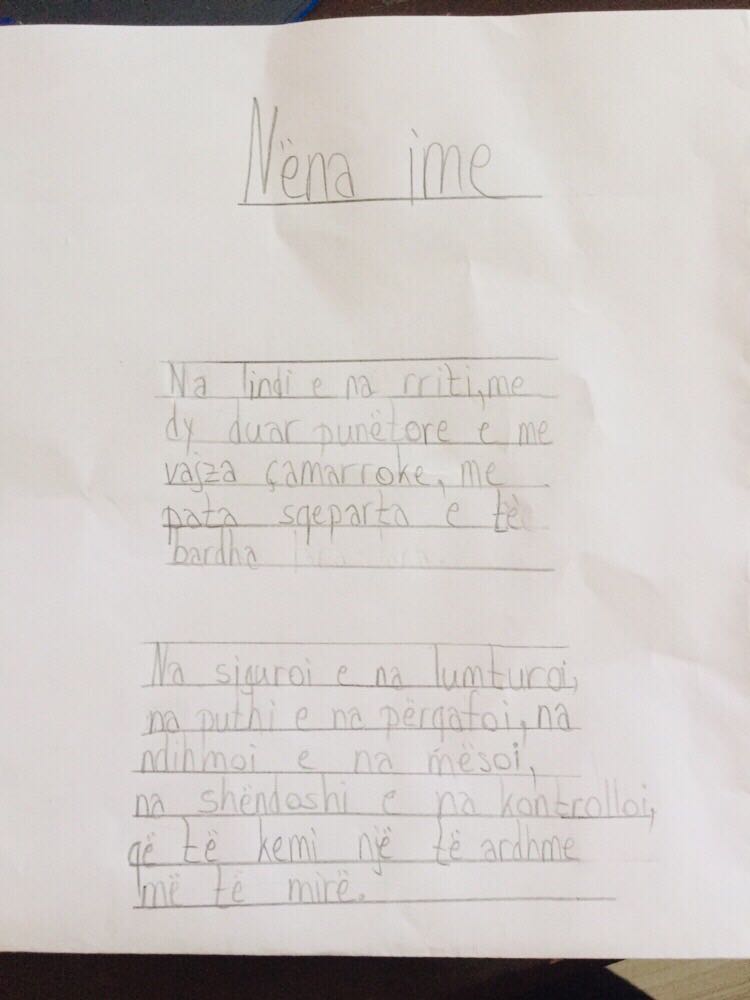 Nëna ime
Na lindi e na rriti, me
dy duar punëtore e me
vajza çamarroke, me
pata sqeparta e të
bardha
Na siguroi e na lumturoi,
na puthi e na përqafoi, na
ndihmoi e na mësoi,
na shëndoshi e na kontrolloi,
që të kemi një të ardhme
më të mirë.